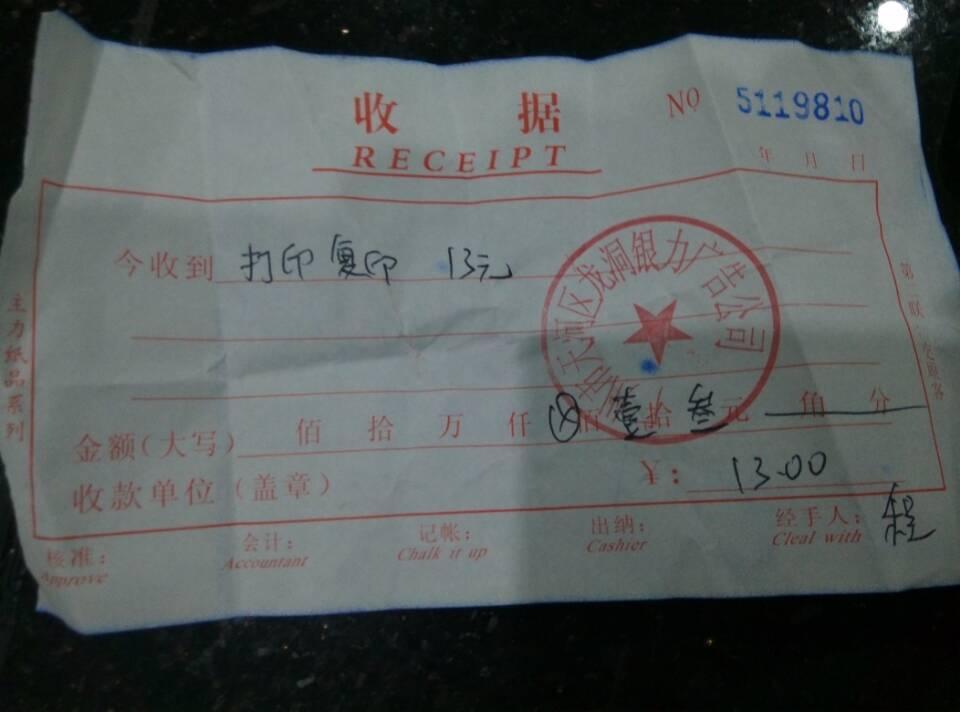 收 据 NO 5119810
RECEIPT
年 月 日
今收到 打印复印 13元
天河区龙洞银力广告公司
金额(大写) 佰 拾 万 仟 ⊗佰 壹拾 叁元 角 分
收款单位(盖章) ¥: 13.00
核准: 会计: 记帐: 出纳: 经手人: 程
Approve Accountant Chalk it up Cashier Cleal with
主力纸品系列
第二联